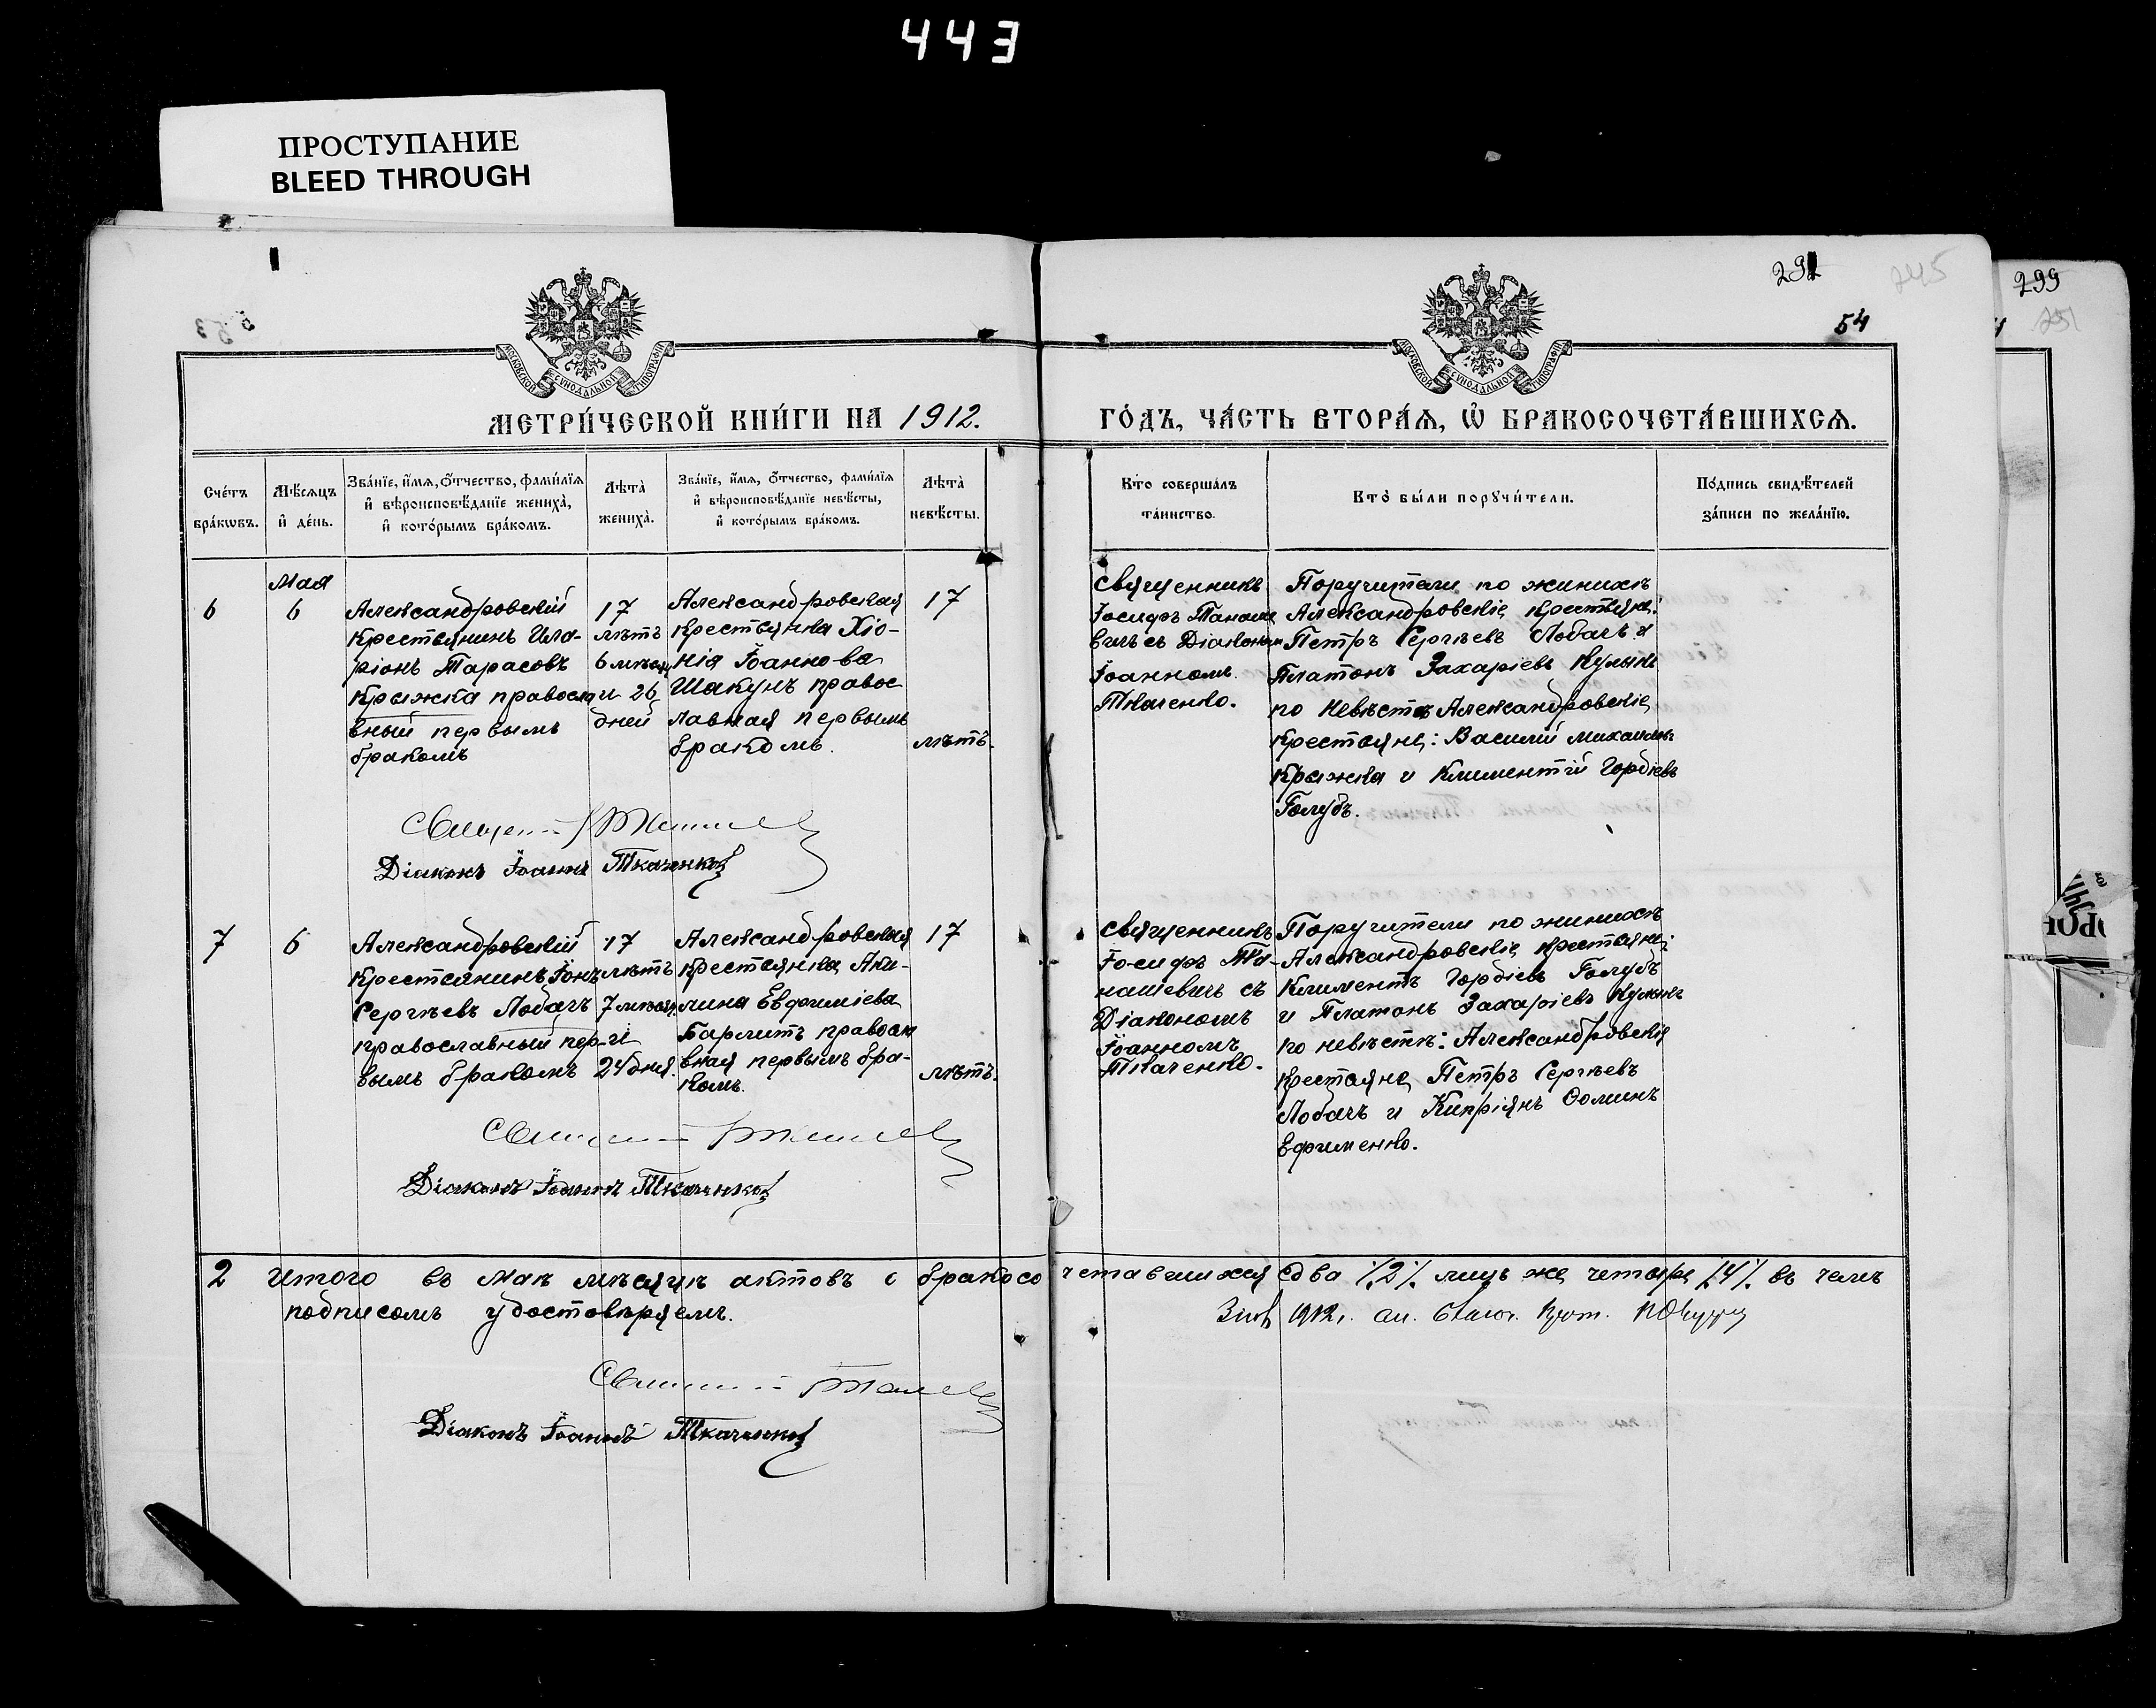 443
ПРОСТУПАНИЕ
BLEED THROUGH
291
245
299
251
54
МОСКОВСКОЙ СѴНОДАЛЬНОЙ ТИПОГРАФІИ
МОСКОВСКОЙ СѴНОДАЛЬНОЙ ТИПОГРАФІИ
МЕТРИ́ЧЕСКОЙ КНИ́ГИ НА 1912.
ГО́ДЪ, ЧА́СТЬ ВТОРА́Я, Ѡ҆ БРАКОСОЧЕТА́ВШИХСЯ.
Сче́тъ
бра́кѡвъ.
Мѣ́сяцъ
и҆ де́нь.
Зва́нїе, и҆́мя, ѻ҆́тчество, фами́лїя
и҆ вѣроисповѣ́данїе жениха̀,
и҆ кото́рымъ бра́комъ.
Лѣта̀
жениха̀.
Зва́нїе, и҆́мя, ѻ҆́тчество, фами́лїя
и҆ вѣроисповѣ́данїе невѣ́сты,
и҆ кото́рымъ бра́комъ.
Лѣта̀
невѣ́сты.
Кто̀ соверша́лъ
та́инство.
Кто̀ бы́ли порꙋчи́тели.
По́дпись свидѣ́телей
за́писи по жела́нїю.
6
Мая
6
Александровскій
крестьянинъ Ила-
ріонъ Тарасовъ
Крыжка правосла
вный первымъ
бракомъ
17
лѣтъ
6 мѣсяц
и 26
дней
Александровская
крестьянка Хіо-
нія Іоаннова
Шакунъ правос
лавная первымъ
бракомъ.
17
лѣтъ.
Священникъ
Іосифъ Танаше
вичъ съ Діаконом
Іоанномъ
Ткаченко.
Поручители по жинихѣ
Александровскіе крестьяне:
Петръ Сергѣевъ Лобачъ и
Платонъ Захаріевъ Кулыкъ
по невѣстѣ Александровскіе
крестьяне: Василій Михаиловъ
Крыжка и Климентій Гордіевъ
Голубъ.
Діаконъ Іоаннъ Ткаченко
7
6
Александровскій
крестьянинъ Іонъ
Сергѣевъ Лобачъ
православный пер-
вымъ бракомъ
17
лѣтъ
7 мѣсяц
и
24 дня.
Александровская
крестьянка Аки-
лина Евфиміева
Бармитъ правосла
вная первымъ бра-
комъ.
17
лѣтъ.
Священникъ
Іосифъ Та-
нашевичъ съ
Діакономъ
Іоанномъ
Ткаченко.
Поручители по жинихѣ
Александровскіе крестьяне:
Климентъ Гордіевъ Голубъ
и Платонъ Захаріевъ Кулыкъ
по невѣстѣ: Александровскія
крестьяне Петръ Сергѣевъ
Лобачъ и Кипріянъ Ѳоминъ
Ефименко.
Діаконъ Іоаннъ Ткаченко
2 Итого въ маѣ мѣсяцѣ актовъ о бракосочетавшихся два %2% лицъ же четыре %4% въ чемъ
подписомъ удостовѣряемъ.
1912 г.
Діаконъ Іоаннъ Ткаченко